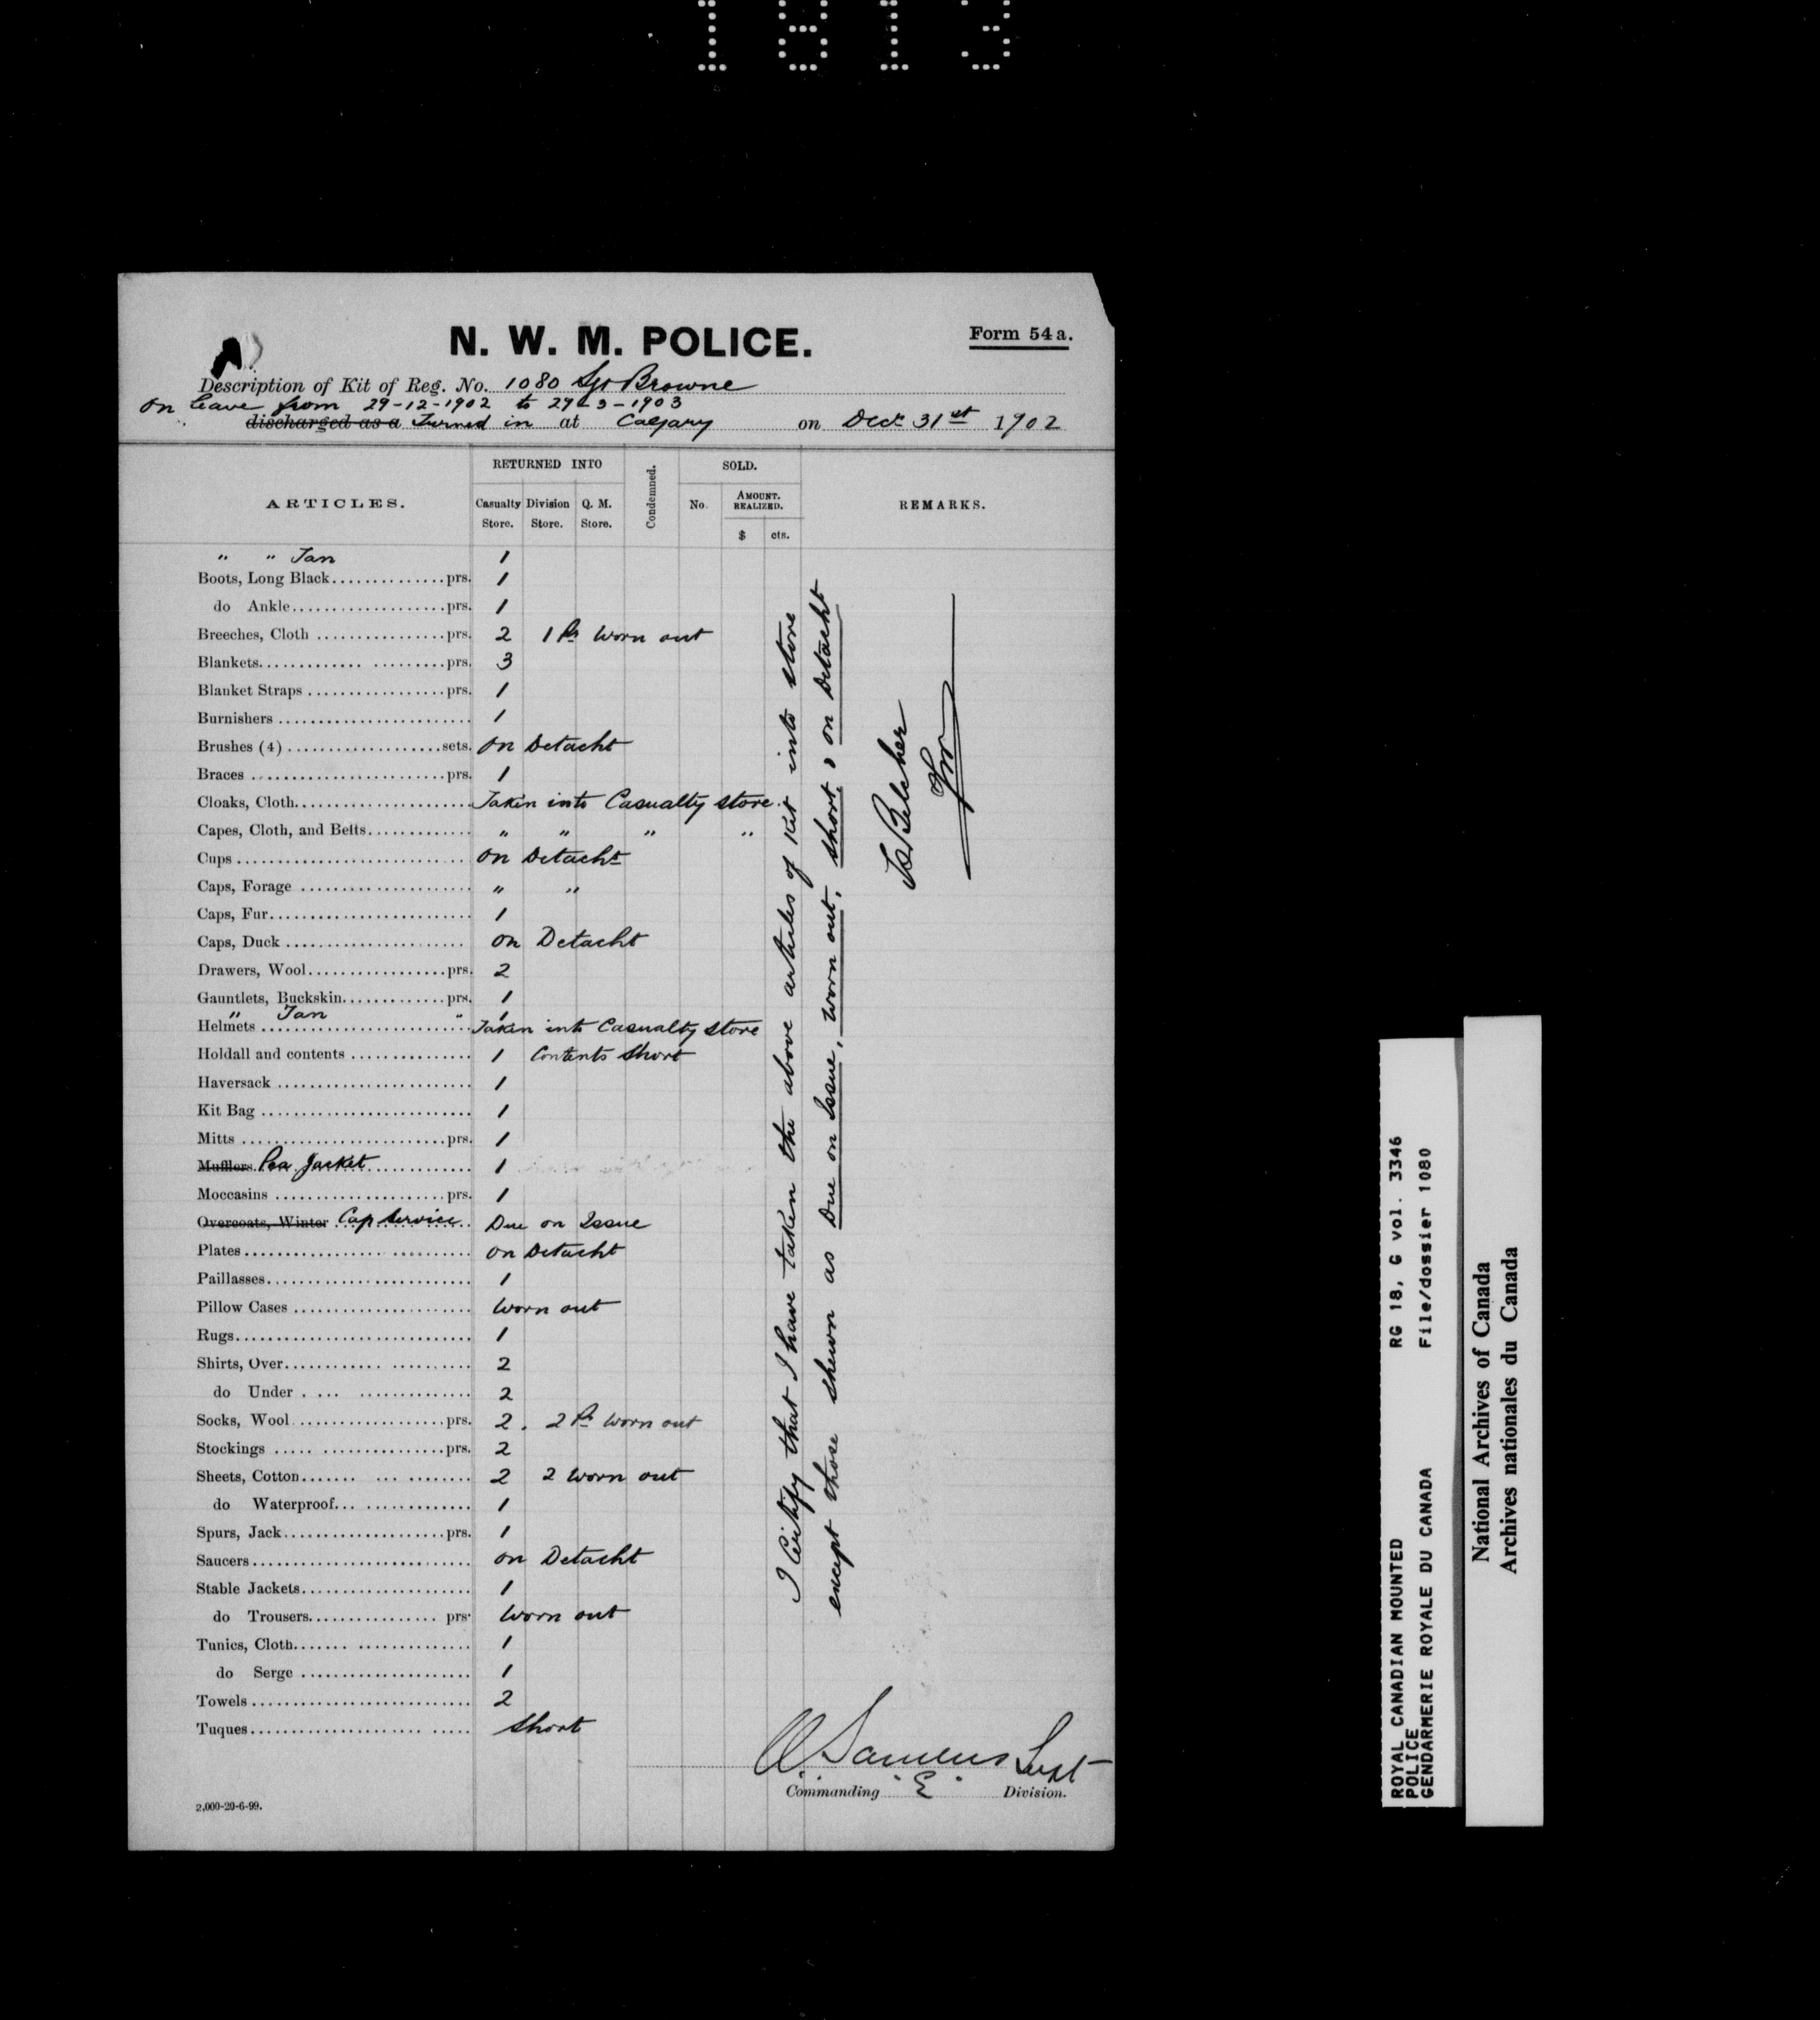 1813
N. W. M. POLICE.
Form 54 a.
Description of Kit of Reg. No. 1080 Sgt Browne
On leave from 29-12-1902 to 29-3-1903
discharged as a Turned in at Calgary on Decr 31st 1902
ARTICLES.
RETURNED INTO
Casualty Store.
Division Store.
Q. M. Store.
Condemned.
SOLD.
No.
AMOUNT. REALIZED.
$ cts.
REMARKS.
" " Tan 1
Boots, Long Black prs. 1
do Ankle prs. 1
Breeches, Cloth prs. 2 1 Pr Worn out
Blankets prs. 3
Blanket Straps prs. 1
Burnishers 1
Brushes (4) sets. On Detacht
Braces prs. 1
Cloaks, Cloth Taken into Casualty store.
Capes, Cloth, and Belts " " " "
Cups On Detacht
Caps, Forage " "
Caps, Fur 1
Caps, Duck On Detacht
Drawers, Wool prs. 2
Gauntlets, Buckskin prs. 1
" Tan " 1
Helmets Taken into Casualty store
Holdall and contents 1 Contents Short
Haversack 1
Kit Bag 1
Mitts prs. 1
Mufflers Pea Jacket 1
Moccasins prs. 1
Overcoats, Winter Cap Service Due on Issue
Plates On Detacht
Paillasses 1
Pillow Cases Worn out
Rugs 1
Shirts, Over 2
do Under 2
Socks, Wool prs. 2. 2 Pr Worn out
Stockings prs. 2
Sheets, Cotton 2 2 Worn out
do Waterproof 1
Spurs, Jack prs. 1
Saucers On Detacht
Stable Jackets 1
do Trousers prs. Worn out
Tunics, Cloth 1
do Serge 1
Towels 2
Tuques Short
I Certify that I have taken the above articles of Kit into store
except those shewn as Due on Issue, worn out, short, & on Detacht
Belcher
Supt
Commanding "E" Division.
2,000-20-6-99.
ROYAL CANADIAN MOUNTED
POLICE
GENDARMERIE ROYALE DU CANADA
RG 18, G vol. 3346
File/dossier 1080
National Archives of Canada
Archives nationales du Canada